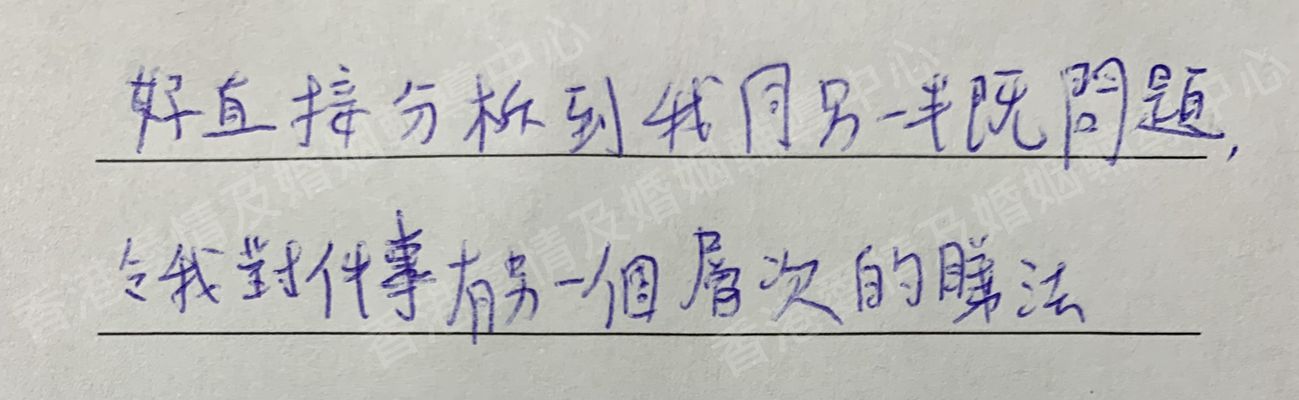 好直接分析到我同另一半既問題，
令我對件事有另一個層次的睇法
香港情及婚姻輔導中心